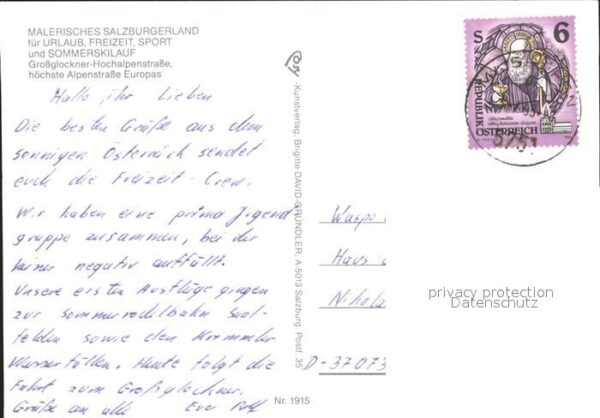 MALERISCHES SALZBURGERLAND
für URLAUB, FREIZEIT, SPORT
und SOMMERSKILAUF
Großglockner-Hochalpenstraße,
höchste Alpenstraße Europas
Hallo ihr Lieben
Die besten Grüße aus dem
sonnigen Österreich sendet
euch die Freizeit-Crew.
Wir haben eine prima Jugend
gruppe zusammen, bei der
keiner negativ auffällt.
Unsere ersten Ausflüge gingen
zur Sommerrodelbahn Saal-
felden sowie den Krimmler
Wasserfällen. Heute folgt die
Fahrt zum Großglockner.
Grüße an alle
Euer
Kunstverlag, Brigitte DAVID-GRÜNDLER, A-5013 Salzburg, Postf. 35
Nr. 1915
S 6
REPUBLIK
ÖSTERREICH
5751
Haus
Nikola
D-37073
privacy protection
Datenschutz